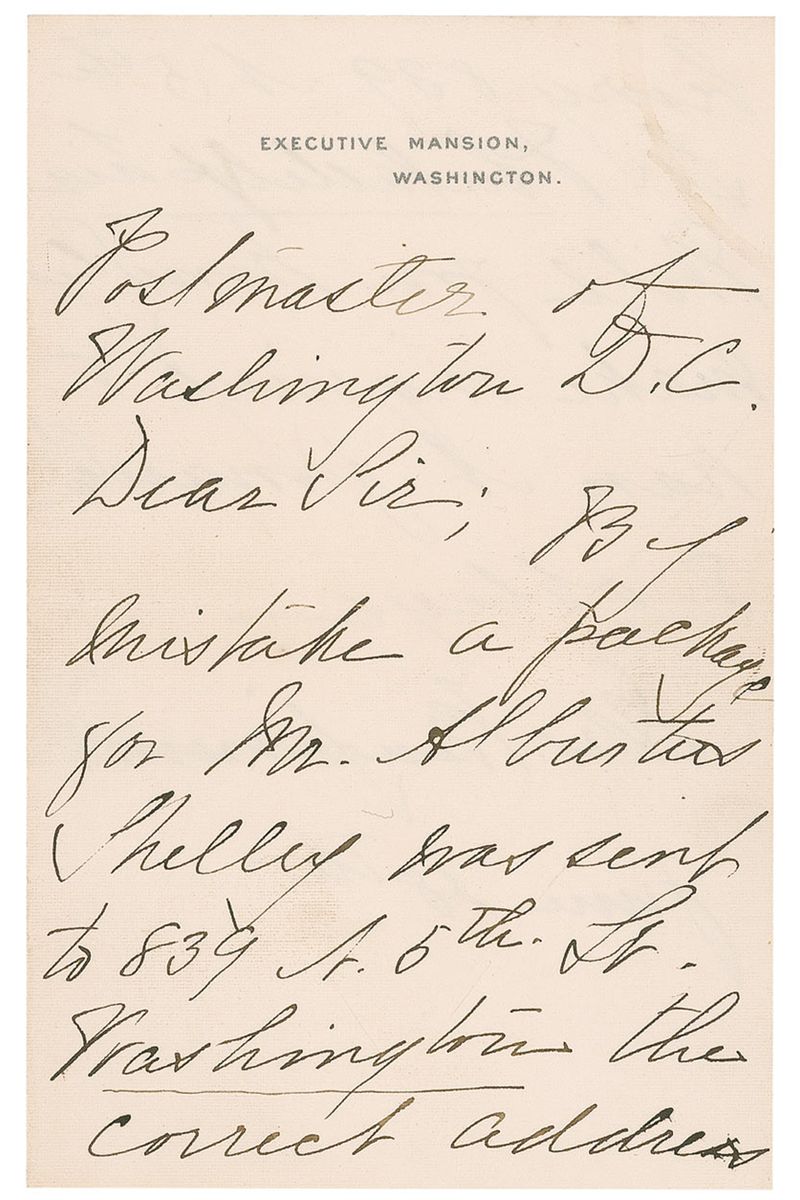 EXECUTIVE MANSION,
WASHINGTON.
Postmaster of
Washington D.C.
Dear Sir; By
mistake a package
for Mr. Alburtus
Shelley was sent
to 839 N. 5th. St.
Washington the
correct address